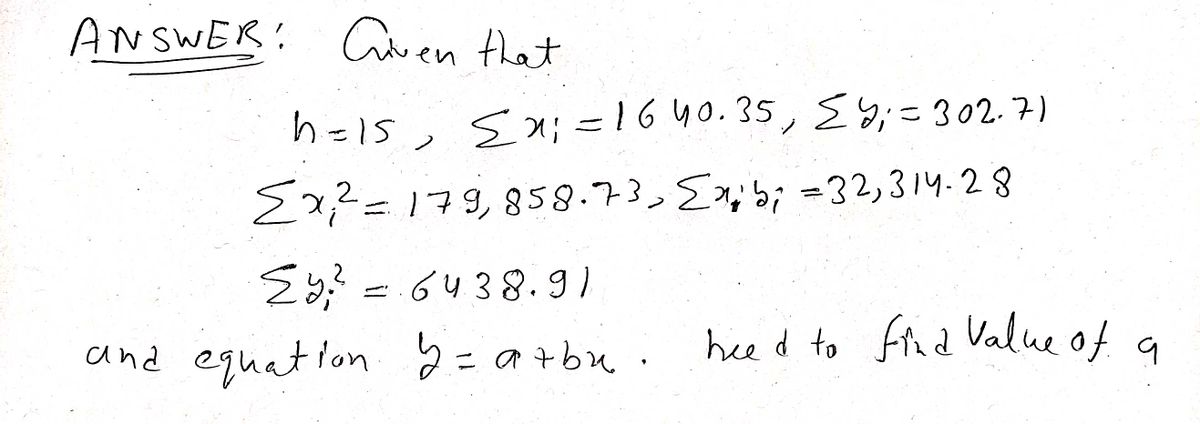 ANSWER: Given that
n=15, Σxᵢ=1640.35, Σyᵢ=302.71
Σxᵢ²=179,858.73, Σxᵢyᵢ=32,314.28
Σyᵢ²=6438.91
and equation y=a+bx. need to find Value of a